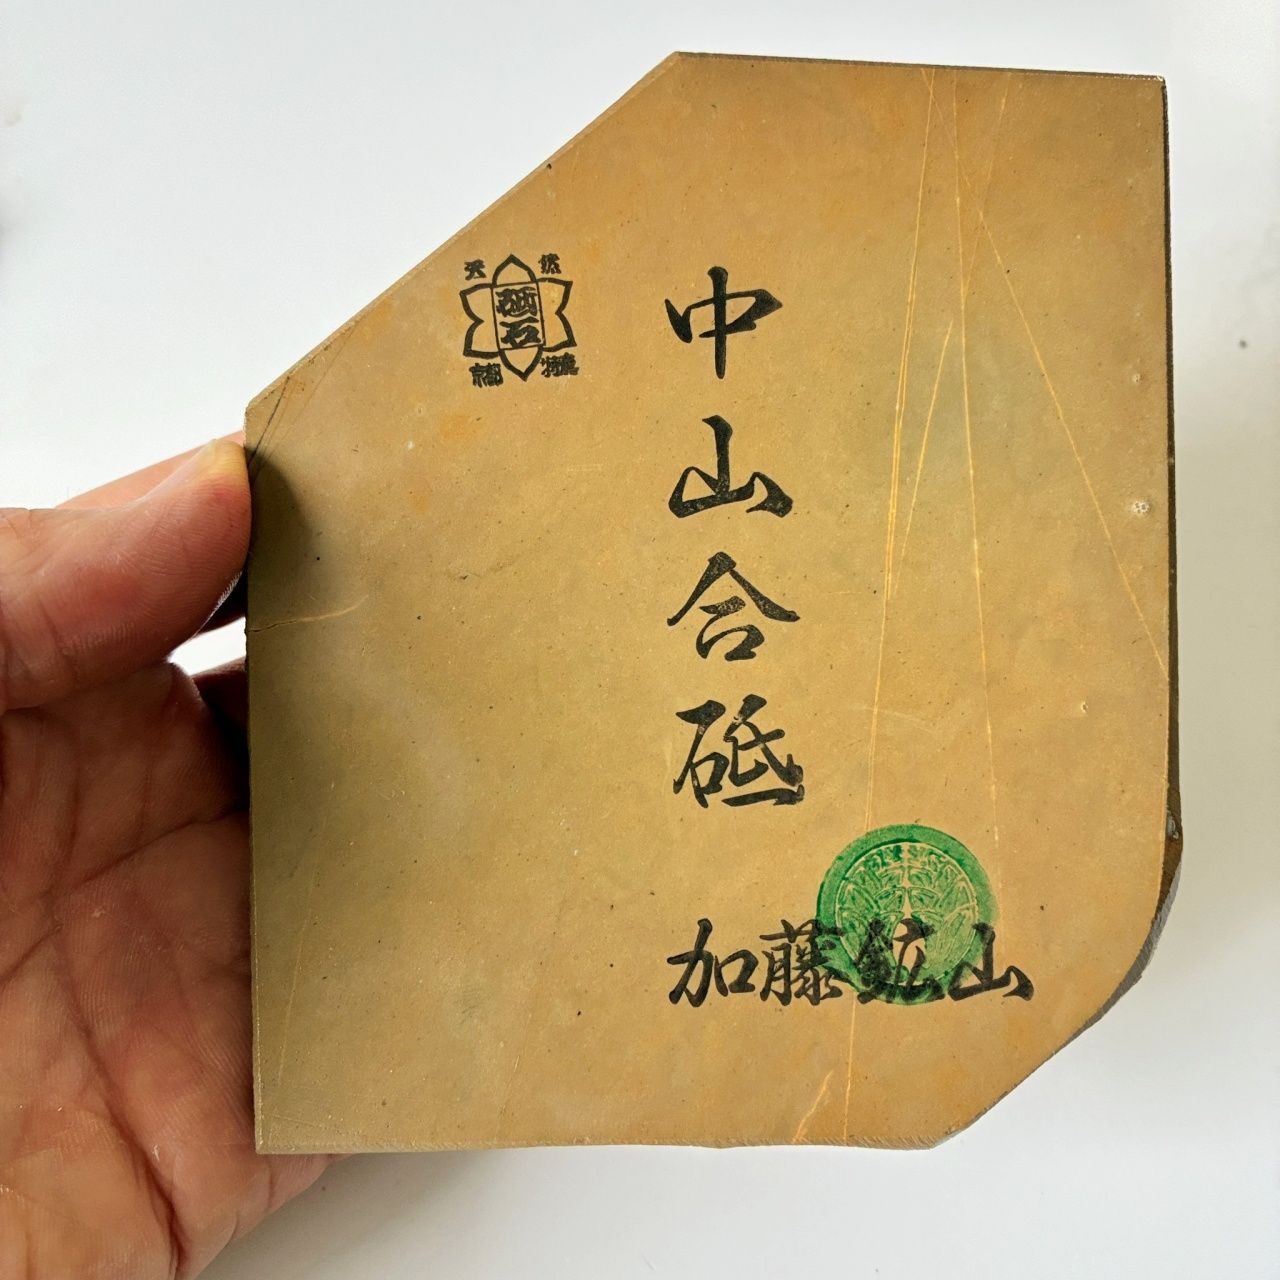 天然
砥石
京都特産
中山合砥
加藤鉱山